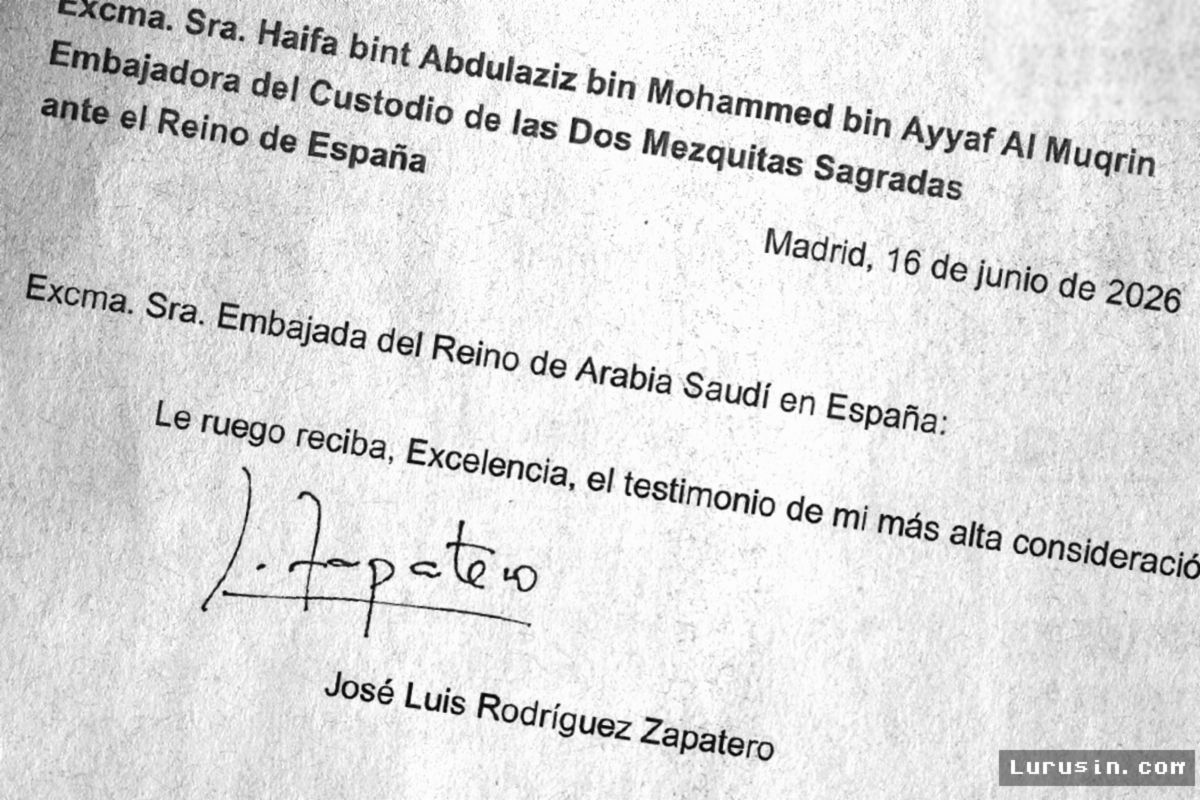 Excma. Sra. Haifa bint Abdulaziz bin Mohammed bin Ayyaf Al Muqrin
Embajadora del Custodio de las Dos Mezquitas Sagradas
ante el Reino de España
Madrid, 16 de junio de 2026
Excma. Sra. Embajada del Reino de Arabia Saudí en España:
Le ruego reciba, Excelencia, el testimonio de mi más alta consideració
J. Zapatero
José Luis Rodríguez Zapatero
Lurusin.com